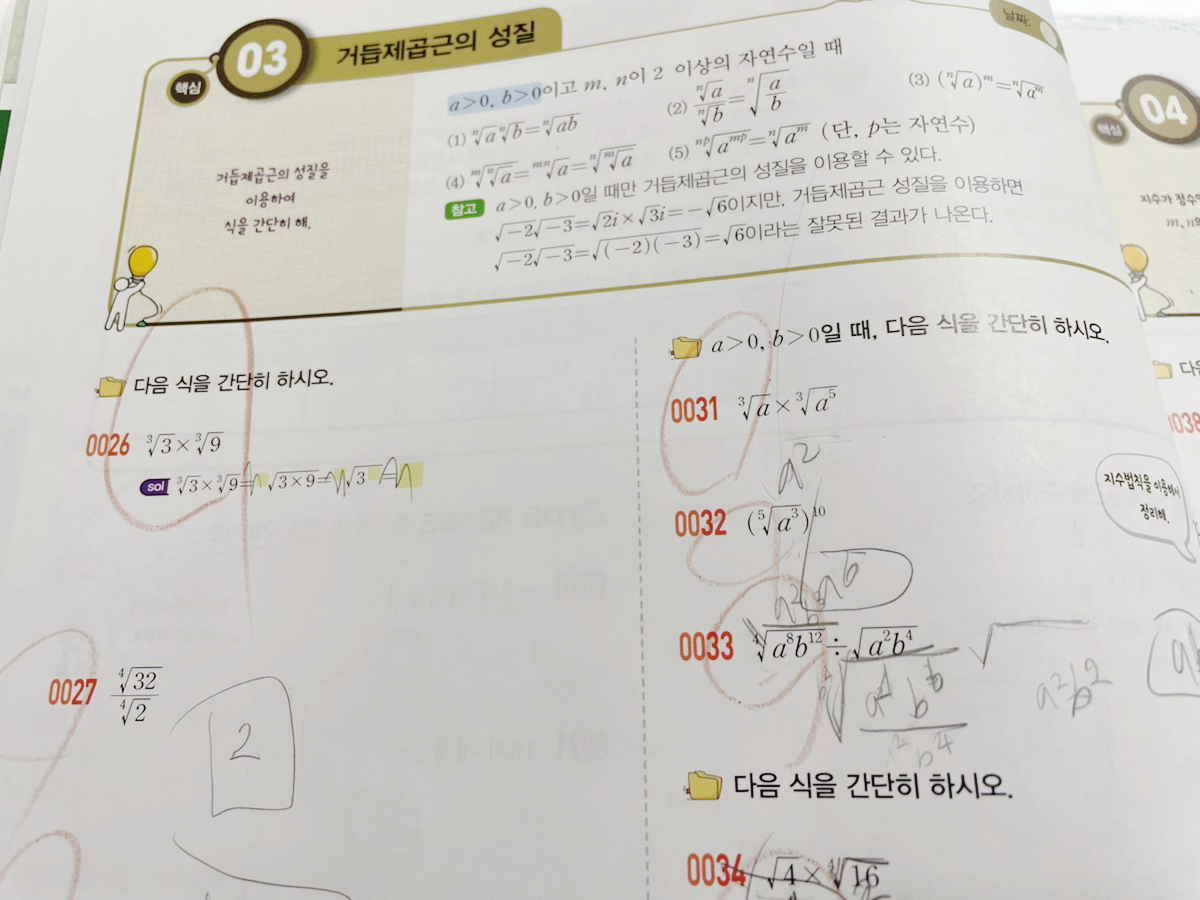 핵심
03 거듭제곱근의 성질
날짜.
거듭제곱근의 성질을
이용하여
식을 간단히 해.
a>0, b>0이고 m, n이 2 이상의 자연수일 때
(1) ⁿ√a ⁿ√b = ⁿ√ab (2) ⁿ√a / ⁿ√b = ⁿ√(a/b) (3) (ⁿ√a)ᵐ = ⁿ√aᵐ
(4) ᵐ√ⁿ√a = ᵐⁿ√a = ⁿ√ᵐ√a (5) ⁿᵖ√aᵐᵖ = ⁿ√aᵐ (단, p는 자연수)
참고 a>0, b>0일 때만 거듭제곱근의 성질을 이용할 수 있다.
√-2√-3=√2i×√3i=-√6이지만, 거듭제곱근 성질을 이용하면
√-2√-3=√(-2)(-3)=√6이라는 잘못된 결과가 나온다.
다음 식을 간단히 하시오.
0026 ³√3×³√9
sol ³√3×³√9= √3×9= √3
0027 ⁴√32 / ⁴√2
2
a>0, b>0일 때, 다음 식을 간단히 하시오.
0031 ³√a×³√a⁵
a²
0032 (⁵√a³)¹⁰
a⁶
0033 ⁴√a⁸b¹² ÷ √a²b⁴
a²b²
다음 식을 간단히 하시오.
0034 √4×⁴√16
핵심
04
지수법칙을 이용해서
정리해.
0038